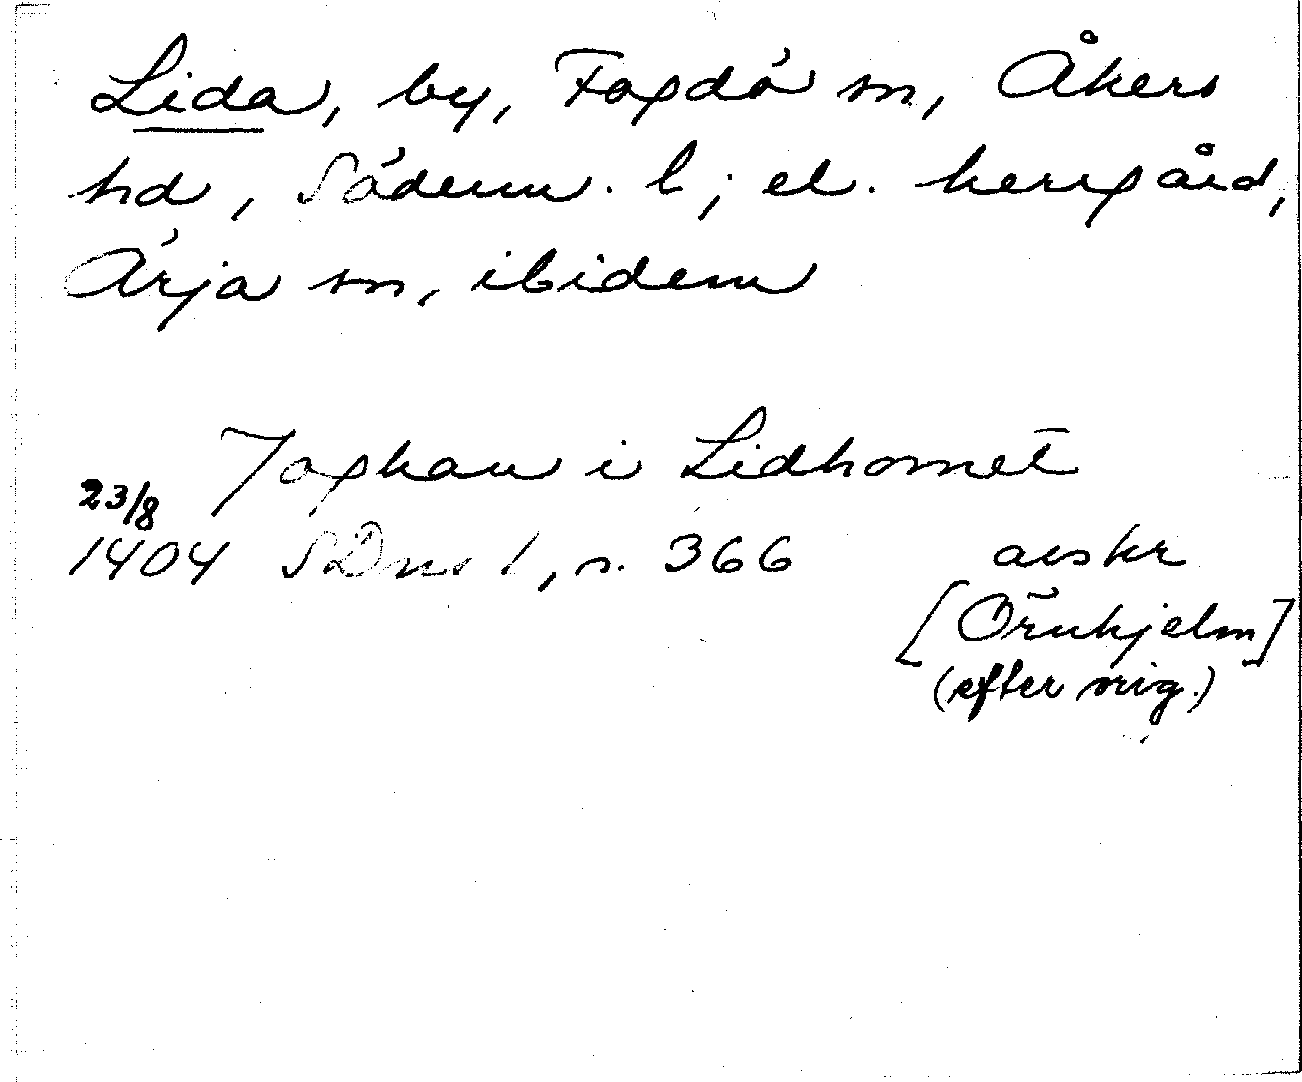 Lida, by, Fogdö sn, Åkers
hd, Söderm. l; el. herrgård,
Ärja sn, ibidem
Joghan i Lidhomet
23/8
1404 SDns 1, s. 366 avskr
[Örnhjelm]
(efter orig.)